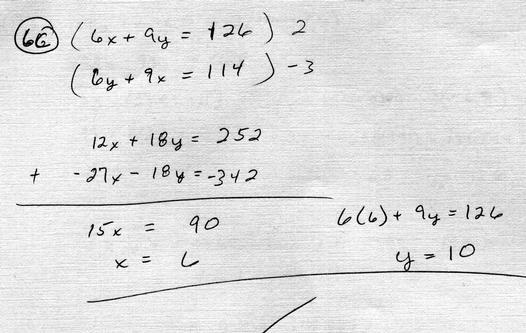 66 ( 6x + 9y = 126 ) 2
( 6y + 9x = 114 ) -3
12x + 18y = 252
+ -27x - 18y = -342
15x = 90
6(6) + 9y = 126
x = 6
y = 10